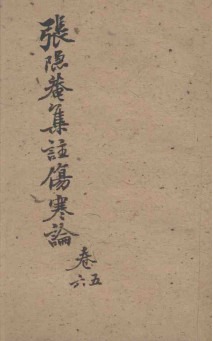 張隐菴集註傷寒論
卷五六